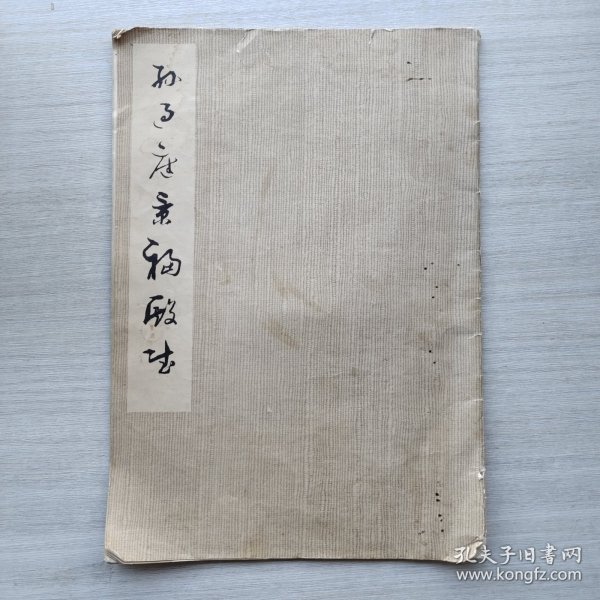 孙过庭景福殿赋
孔夫子旧書网
www.kongfz.com